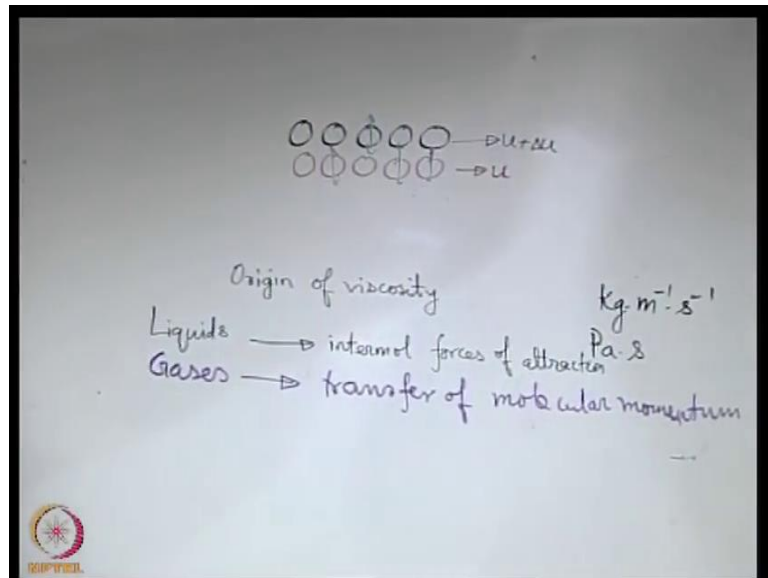 u+Δu
u
Origin of viscosity
Kg.m⁻¹.s⁻¹
Liquids → intermol forces of attraction
Pa.s
Gases → transfer of molecular momentum
NPTEL